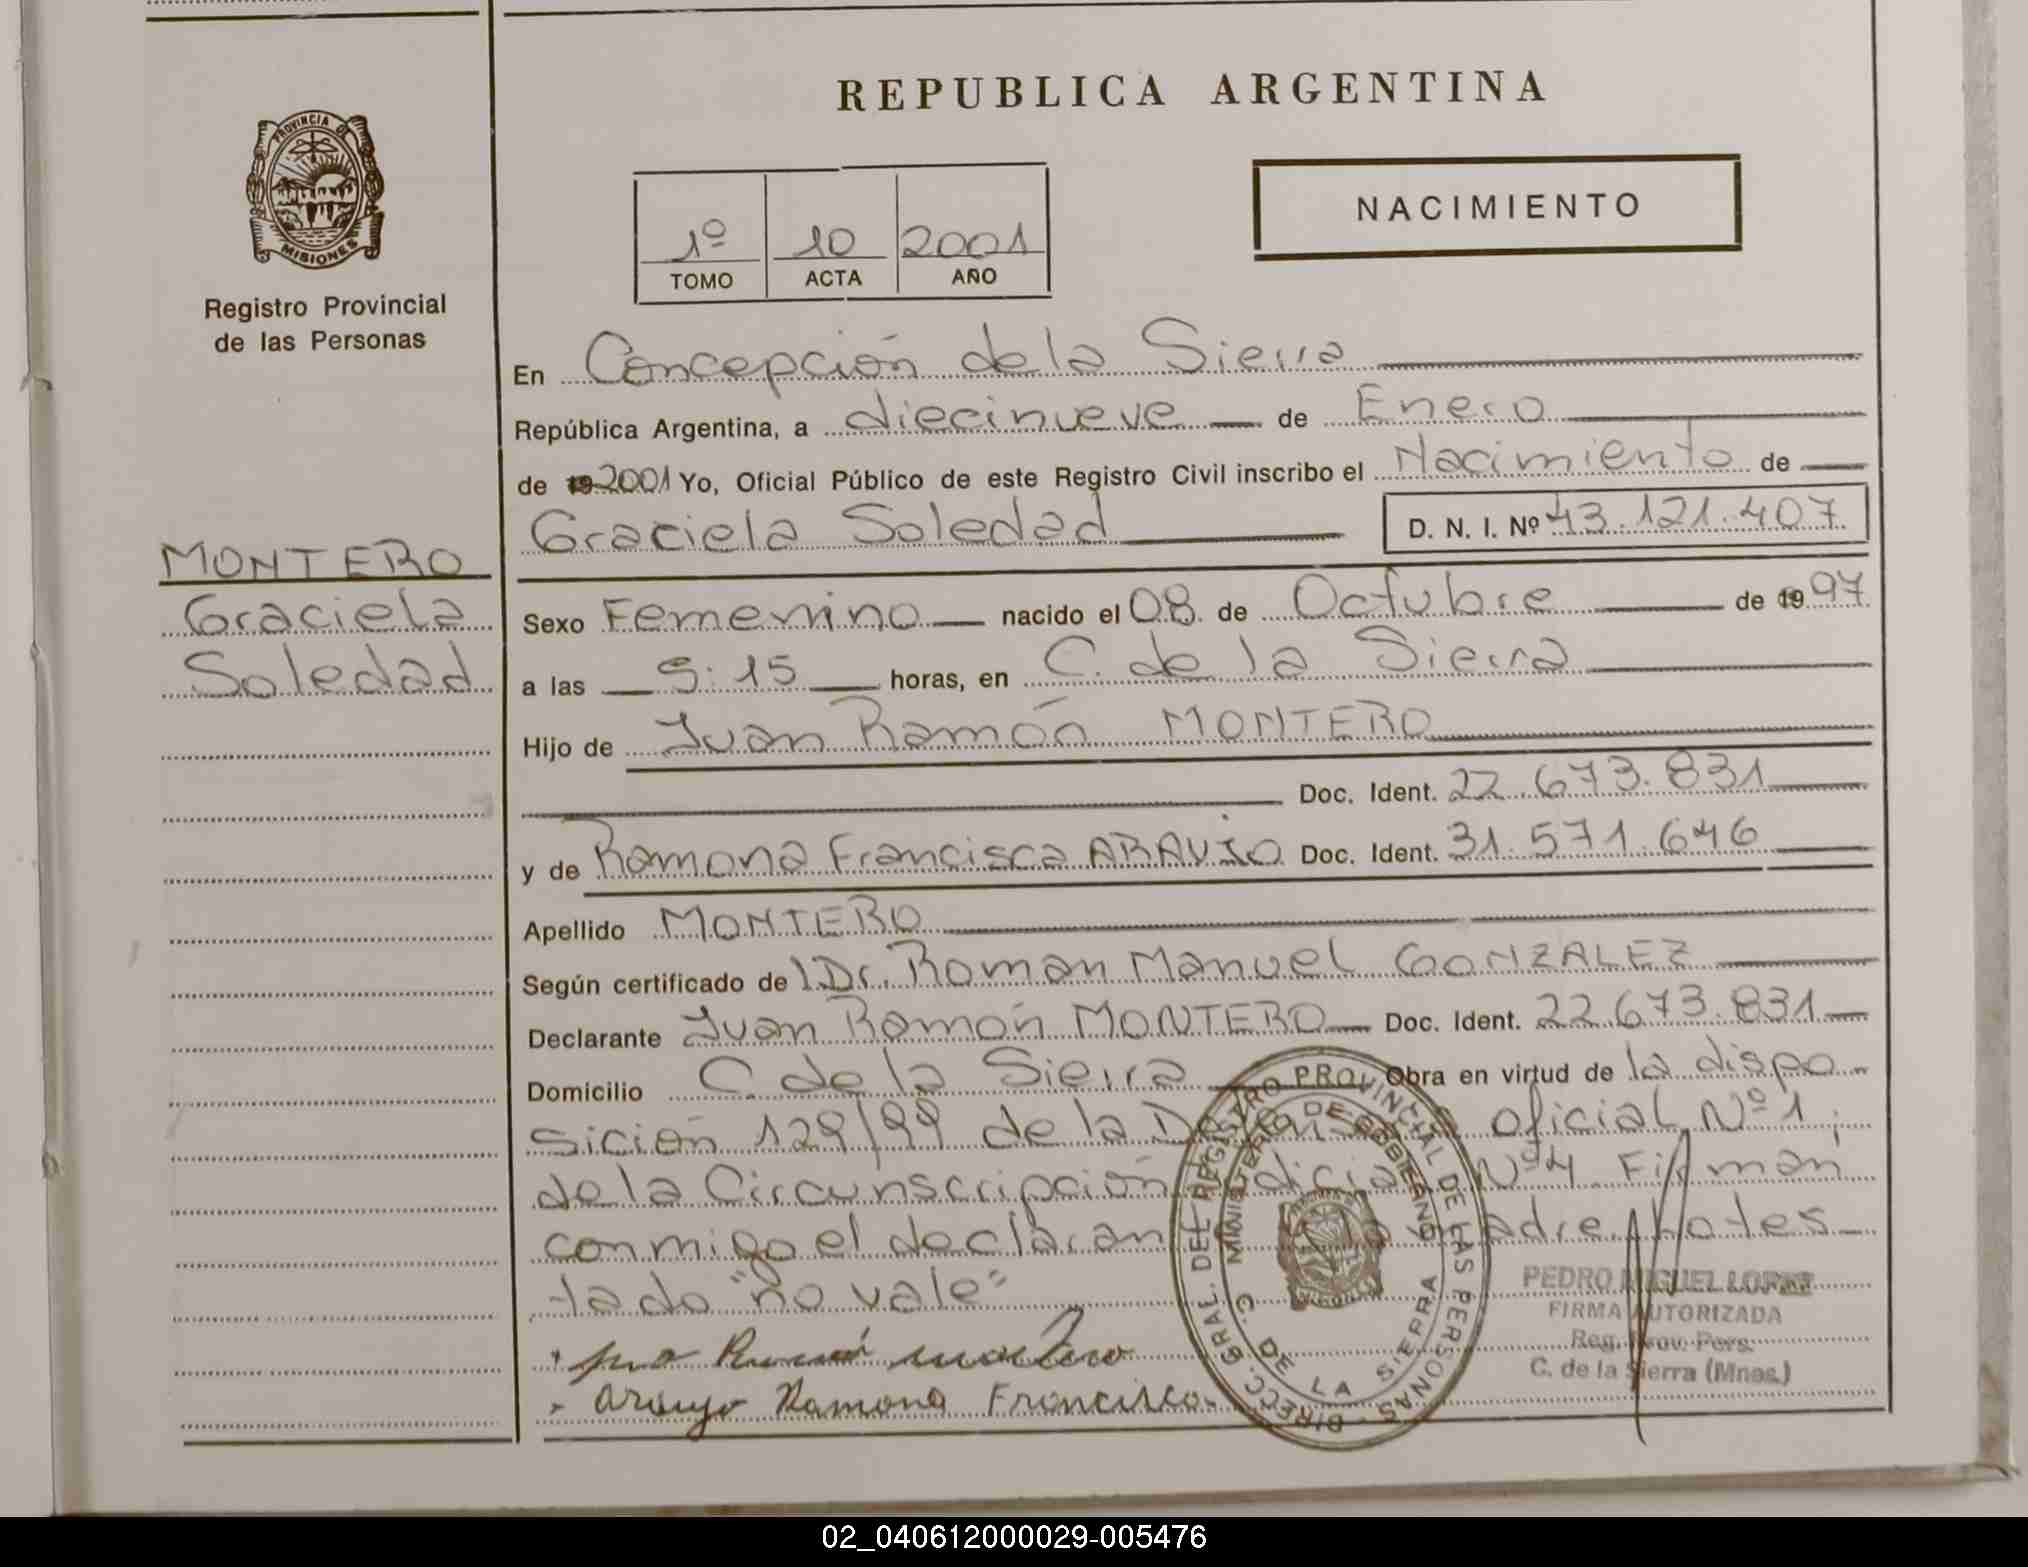 REPUBLICA ARGENTINA
PROVINCIA DE
MISIONES
Registro Provincial
de las Personas
NACIMIENTO
1º 10 2001
TOMO ACTA AÑO
En Concepción de la Sierra
República Argentina, a diecinueve de Enero
de 19 2001 Yo, Oficial Público de este Registro Civil inscribo el Nacimiento de
Graciela Soledad D. N. I. Nº 43.121.407
MONTERO
Graciela
Soledad
Sexo Femenino nacido el 08 de Octubre de 1997
a las 5:15 horas, en C. de la Sierra
Hijo de Juan Ramón MONTERO
Doc. Ident. 22.673.831
y de Ramona Francisca ARAUJO Doc. Ident. 31.571.646
Apellido MONTERO
Según certificado de Dr. Roman Manuel GONZALEZ
Declarante Juan Ramón MONTERO Doc. Ident. 22.673.831
Domicilio C de la Sierra Obra en virtud de la dispo
sición 129/99 de la oficial Nº 1
de la Circunscripción Nº 4 Firman
conmigo el declaran madre. Notes
tado "no vale"
Ramón Montero
Araujo Ramona Francisca
DIRECC. GRAL. DEL REGISTRO PROVINCIAL DE LAS PERSONAS
MINISTERIO DE GOBIERNO
C. DE LA SIERRA
PEDRO MIGUEL LOPEZ
FIRMA AUTORIZADA
Reg. Prov. Pers.
C. de la Sierra (Mnes.)
02_040612000029-005476